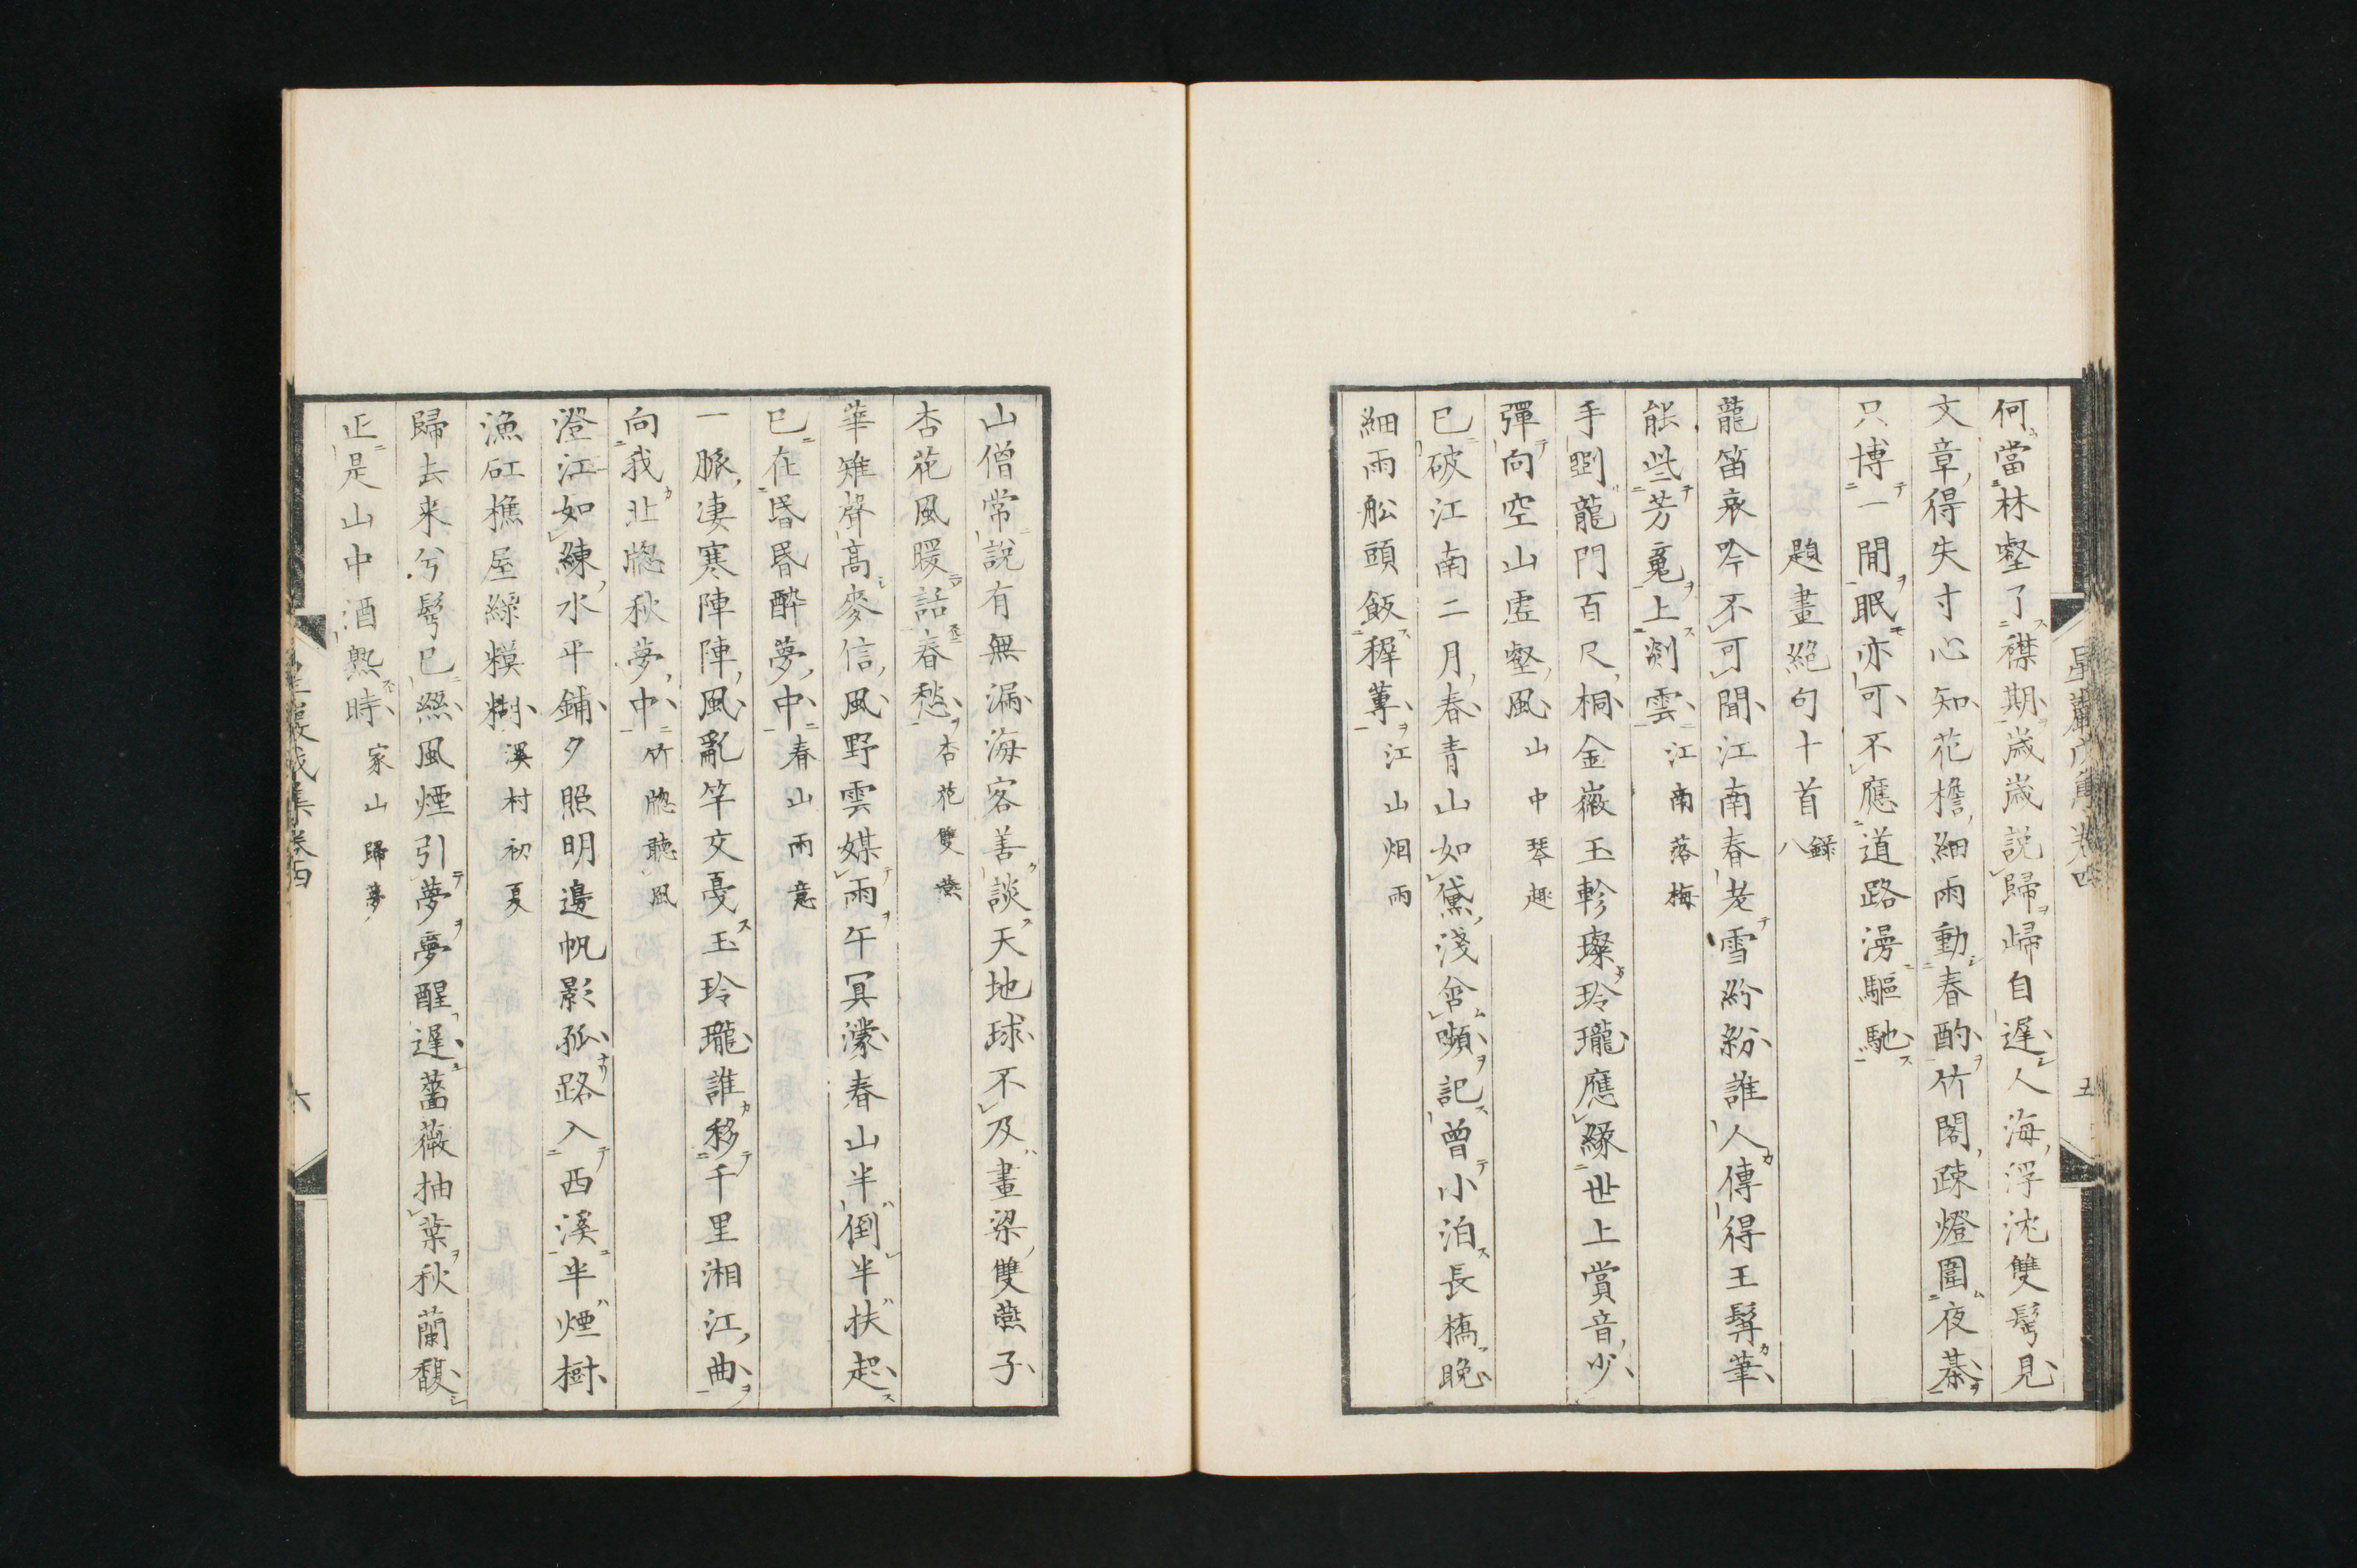 何當林壑了襟期歲歲説歸歸自遲人海浮沈雙鬢見
文章得失寸心知花檐細雨動春酌竹閣疎燈圍夜棊
只博一閒眠亦可不應道路漫驅馳
題畫絶句十首錄八
龍笛哀吟不可聞江南春老雪紛紛誰人傳得王髯筆
能些芳䰟上剡雲江南落梅
手斵龍門百尺桐金徽玉軫璨玲瓏應緣世上賞音少
彈向空山虛壑風山中琴趣
已破江南二月春青山如黛淺含嚬記曾小泊長橋晚
細雨舩頭飯稺蓴江山烟雨
山僧常説有無漏海客善談天地球不及畫梁雙燕子
杏花風暖話春愁杏花雙燕
華雉聲高麥信風野雲媒雨午冥濛春山半倒半扶起
已在昏昏醉夢中春山雨意
一脈凄寒陣陣風亂竿交戞玉玲瓏誰移千里湘江曲
向我北牕秋夢中竹牕聽風
澄江如練水平鋪夕照明邊帆影孤路入西溪半煙樹
漁矼樵屋綠糢糊溪村初夏
歸去来兮鬢已絲風煙引夢夢醒遲薔薇抽葉秋蘭馥
正是山中酒熟時家山歸夢
星巖戊集卷四
五
六